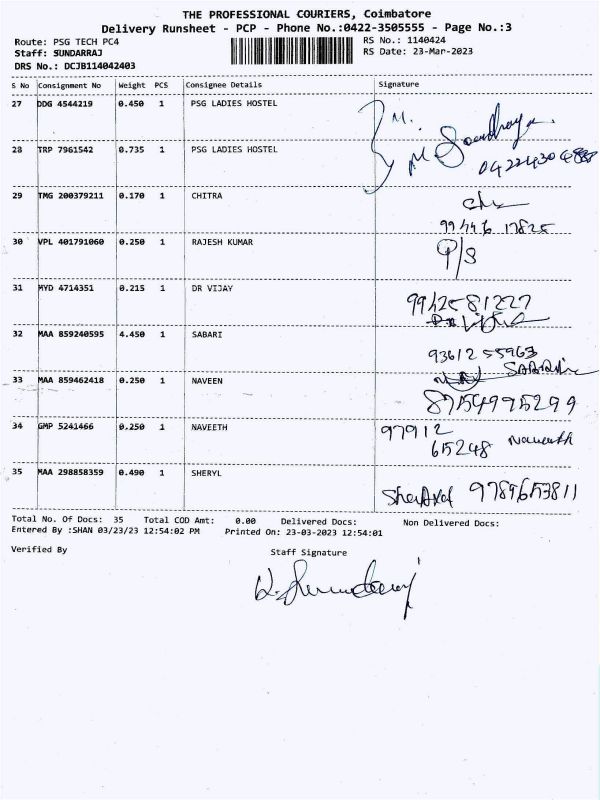 THE PROFESSIONAL COURIERS, Coimbatore
Delivery Runsheet - PCP - Phone No.:0422-3505555 - Page No.:3
Route: PSG TECH PC4 RS No.: 1140424
Staff: SUNDARRAJ RS Date: 23-Mar-2023
DRS No.: DCJB114042403
S No Consignment No Weight PCS Consignee Details Signature
27 DDG 4544219 0.450 1 PSG LADIES HOSTEL
M.
28 TRP 7961542 0.735 1 PSG LADIES HOSTEL
29 TMG 200379211 0.170 1 CHITRA
99446 17825
30 VPL 401791060 0.250 1 RAJESH KUMAR
31 MYD 4714351 0.215 1 DR VIJAY
9942581227
32 MAA 859240595 4.450 1 SABARI
93612 55963
33 MAA 859462418 0.250 1 NAVEEN
8754995299
34 GMP 5241466 0.250 1 NAVEETH
97912
615248 Naveeth
35 MAA 298858359 0.490 1 SHERYL
9789653811
Total No. Of Docs: 35 Total COD Amt: 0.00 Delivered Docs: Non Delivered Docs:
Entered By :SHAN 03/23/23 12:54:02 PM Printed On: 23-03-2023 12:54:01
Verified By Staff Signature